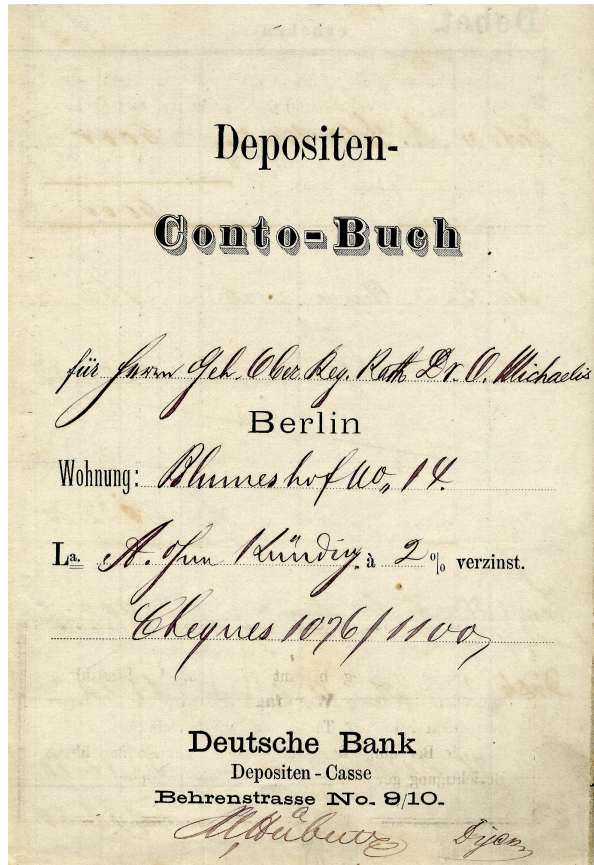 Depositen-
Conto-Buch.
für Herrn Geh. Ober Reg. Rath Dr. O. Michaelis
Berlin
Wohnung: Blumeshof No 14.
La. A. ohne Kündig. à 2 % verzinst.
Cheques 1076/1100,
Deutsche Bank
Depositen-Casse
Behrenstrasse No. 9/10.